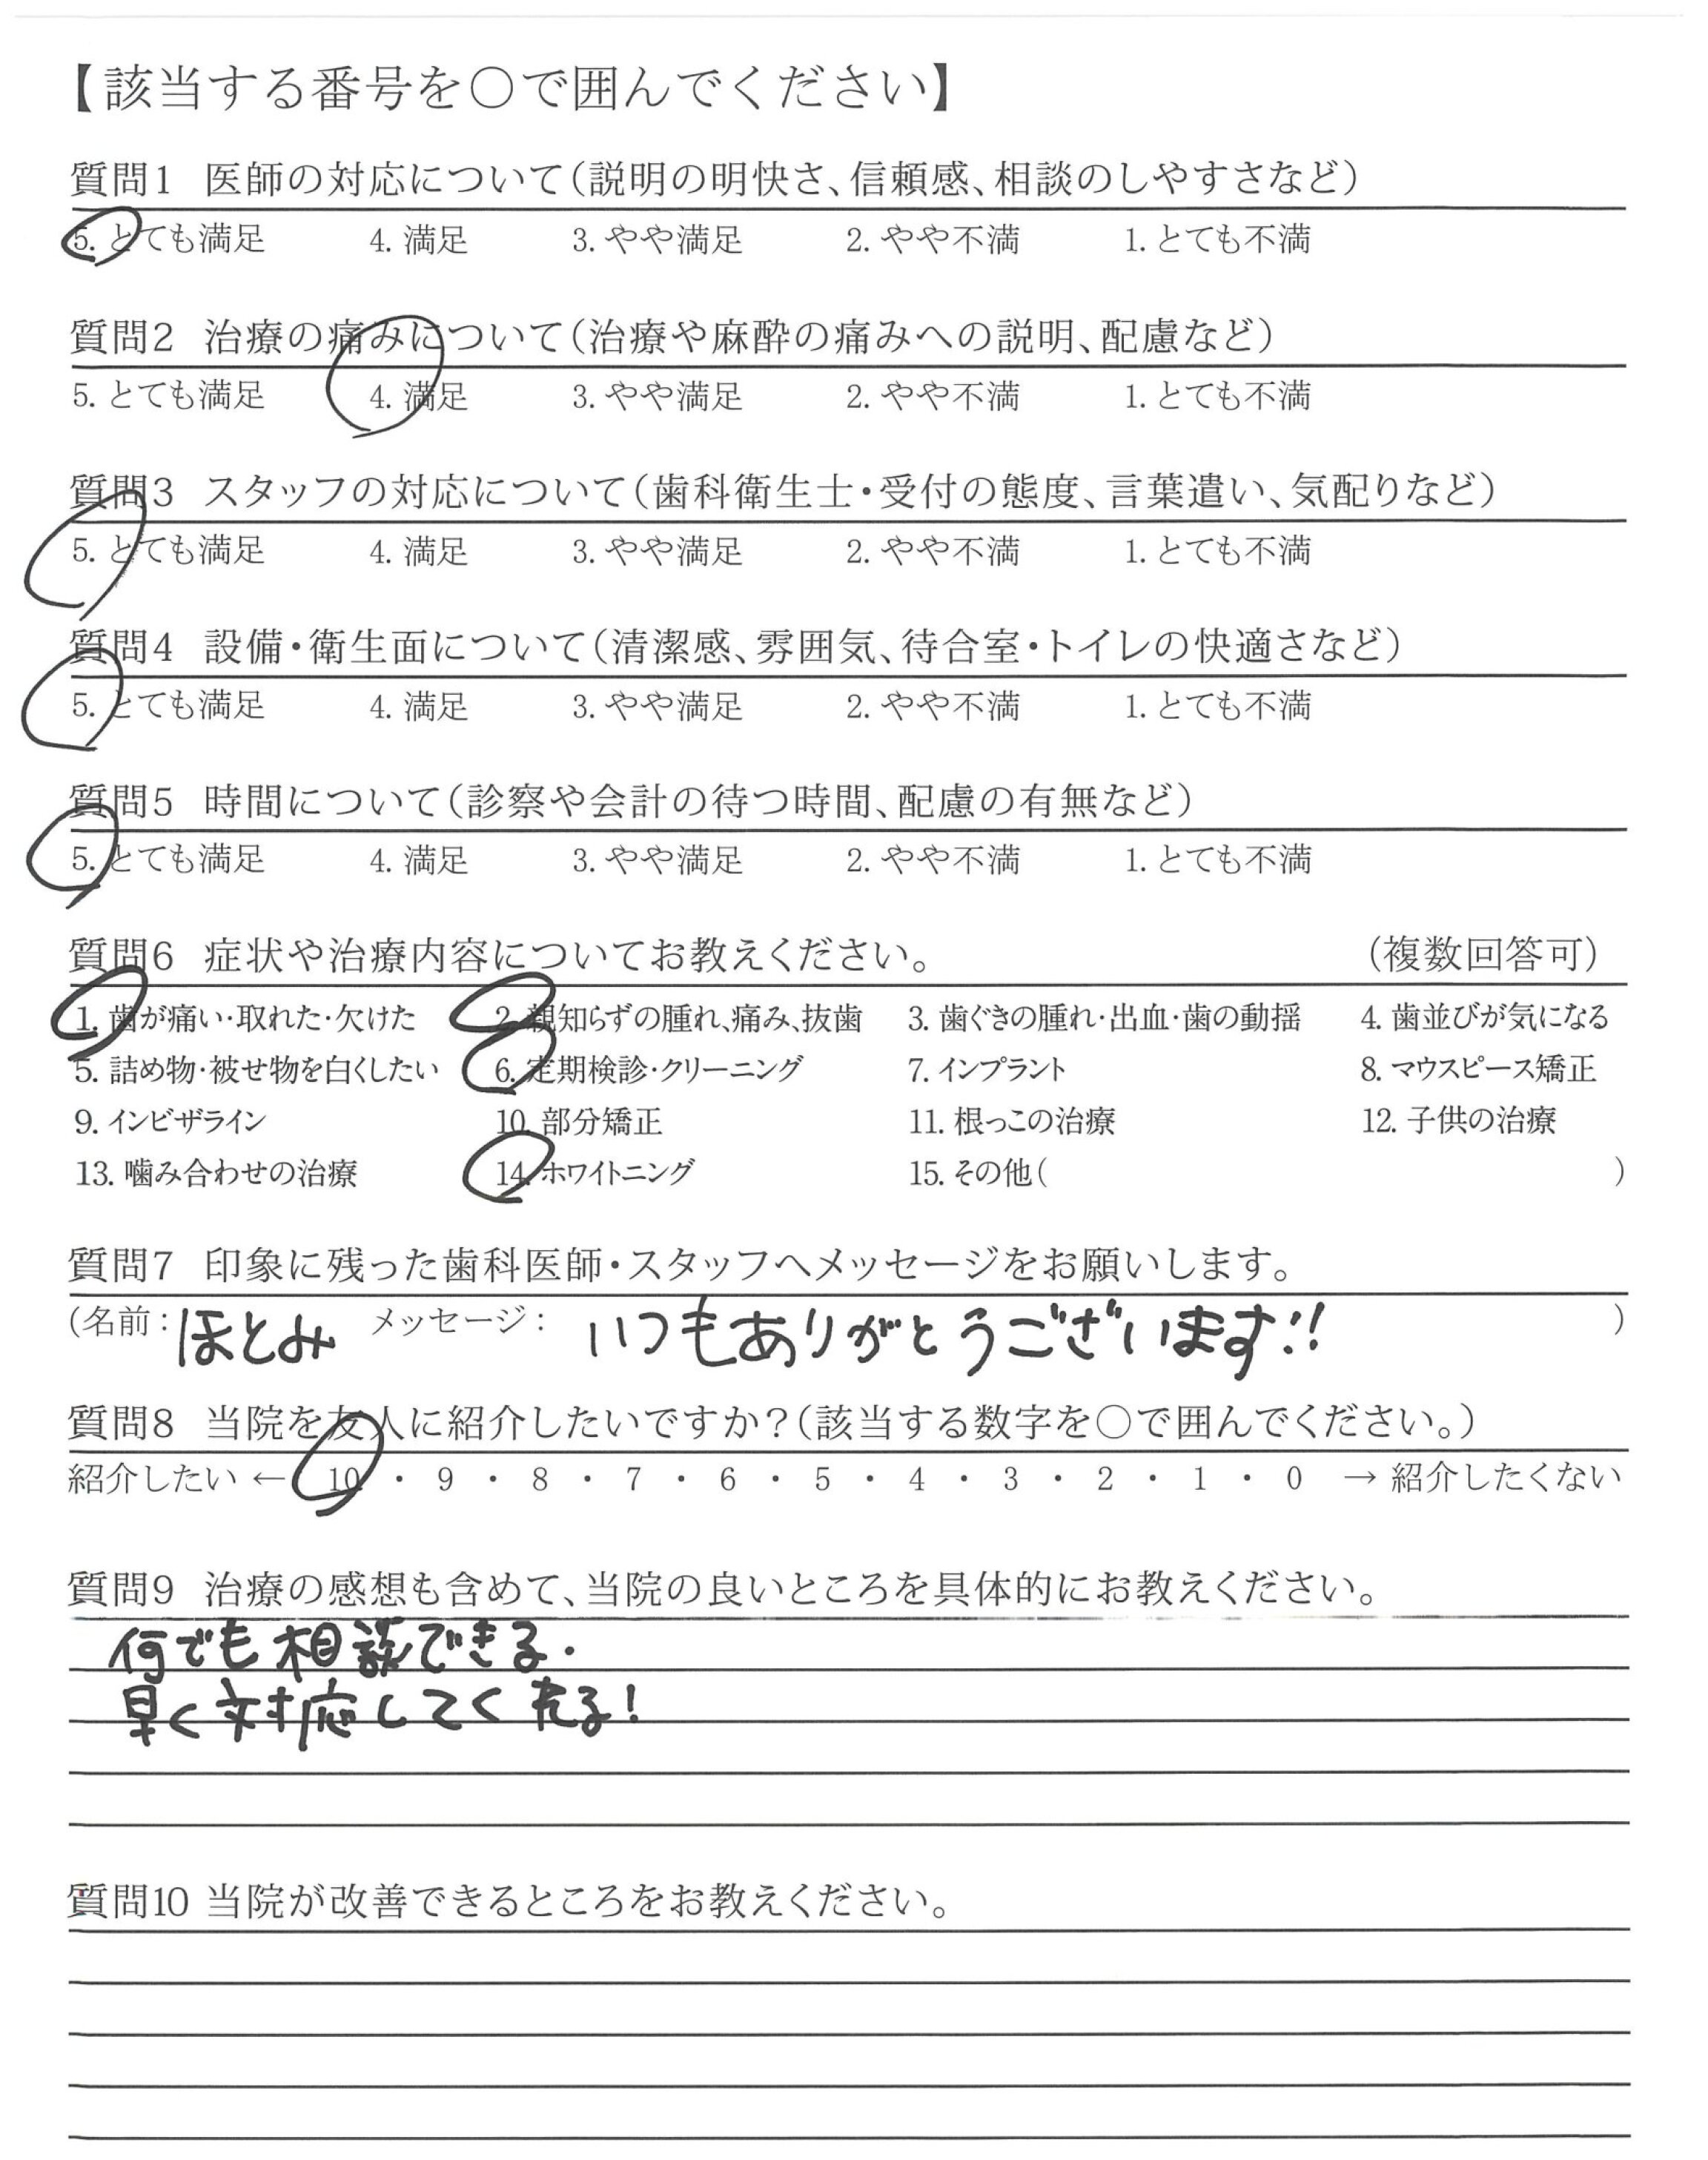 【該当する番号を〇で囲んでください】
質問1 医師の対応について（説明の明快さ、信頼感、相談のしやすさなど）
5. とても満足 4. 満足 3. やや満足 2. やや不満 1. とても不満
質問2 治療の痛みについて（治療や麻酔の痛みへの説明、配慮など）
5. とても満足 4. 満足 3. やや満足 2. やや不満 1. とても不満
質問3 スタッフの対応について（歯科衛生士・受付の態度、言葉遣い、気配りなど）
5. とても満足 4. 満足 3. やや満足 2. やや不満 1. とても不満
質問4 設備・衛生面について（清潔感、雰囲気、待合室・トイレの快適さなど）
5. とても満足 4. 満足 3. やや満足 2. やや不満 1. とても不満
質問5 時間について（診察や会計の待つ時間、配慮の有無など）
5. とても満足 4. 満足 3. やや満足 2. やや不満 1. とても不満
質問6 症状や治療内容についてお教えください。 （複数回答可）
1. 歯が痛い・取れた・欠けた 2. 親知らずの腫れ、痛み、抜歯 3. 歯ぐきの腫れ・出血・歯の動揺 4. 歯並びが気になる
5. 詰め物・被せ物を白くしたい 6. 定期検診・クリーニング 7. インプラント 8. マウスピース矯正
9. インビザライン 10. 部分矯正 11. 根っこの治療 12. 子供の治療
13. 噛み合わせの治療 14. ホワイトニング 15. その他（ ）
質問7 印象に残った歯科医師・スタッフへメッセージをお願いします。
（名前： ほとみ メッセージ： いつもありがとうございます!! ）
質問8 当院を友人に紹介したいですか？（該当する数字を〇で囲んでください。）
紹介したい ← 10 ・ 9 ・ 8 ・ 7 ・ 6 ・ 5 ・ 4 ・ 3 ・ 2 ・ 1 ・ 0 → 紹介したくない
質問9 治療の感想も含めて、当院の良いところを具体的にお教えください。
何でも相談できる.
早く対応してくれる!
質問10 当院が改善できるところをお教えください。